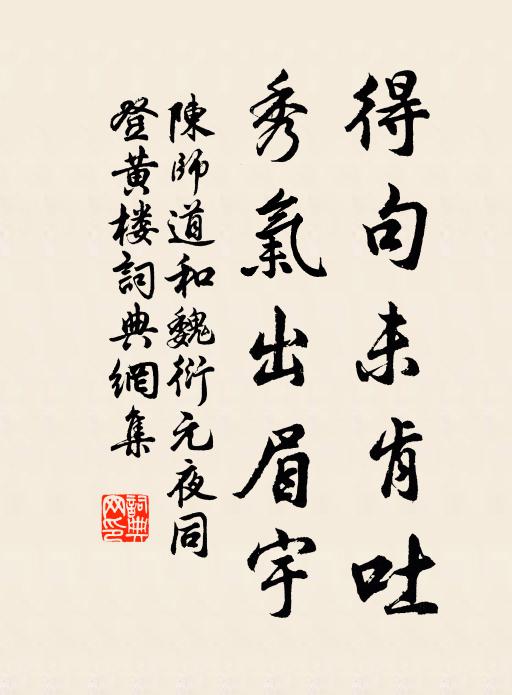 得句未肯吐
秀氣出眉宇
陳師道和魏衍元夜同
登黄楼詞典網集
詞典
网印